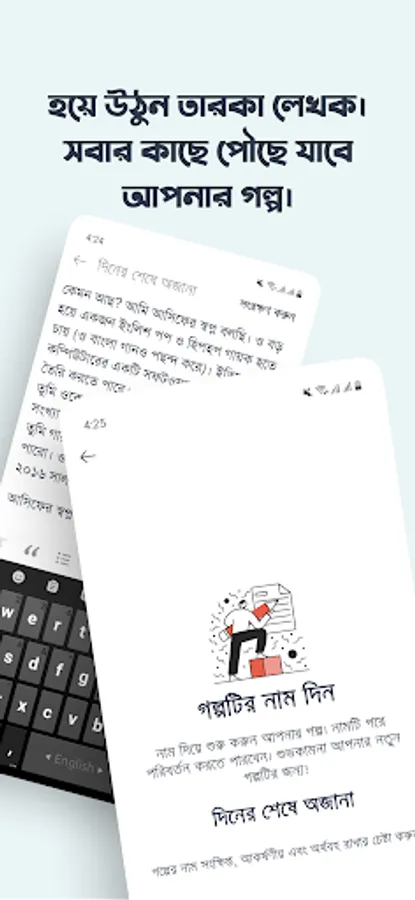 হয়ে উঠুন তারকা লেখক।
সবার কাছে পৌছে যাবে
আপনার গল্প।
4:24
দিনের শেষে অজানা
সংরক্ষণ করুন
কেমন আছ? আমি আসিফের স্বপ্ন বলছি। ও বড়
হয়ে একজন ইংলিশ পপ ও হিপহপ গায়ক হতে
চায় (ও বাংলা গানও পছন্দ করে)।
কম্পিউটারের একটি
তৈরি করতে পারে
তুমি
সংখ্যা
তুমি
পারো।
২০১৬ সাল
আসিফের স্বপ্ন
w e r t
s d f g
x c v b
, English
4:25
গল্পটির নাম দিন
নাম দিয়ে শুরু করুন আপনার গল্প। নামটি পরে
পরিবর্তন করতে পারবেন। শুভকামনা আপনার নতুন
গল্পটির জন্য!
দিনের শেষে অজানা
গল্পের নাম সংক্ষিপ্ত, আকর্ষণীয় এবং অর্থবহ রাখার চেষ্টা করুন